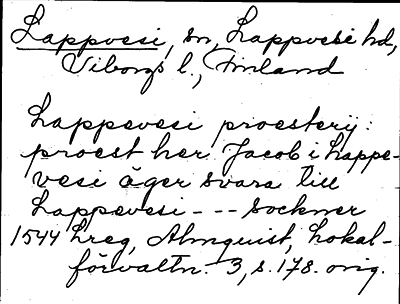 Lappvesi, sn, Lappvesi hd,
Viborgs l., Finland
Lappevesi proesterij:
proest her Jacob i Lappe-
vesi äger svara till
Lappevesi - - - Sockner
1544 Hreg, Almquist, Lokal-
förvaltn. 3, s. 178. orig.